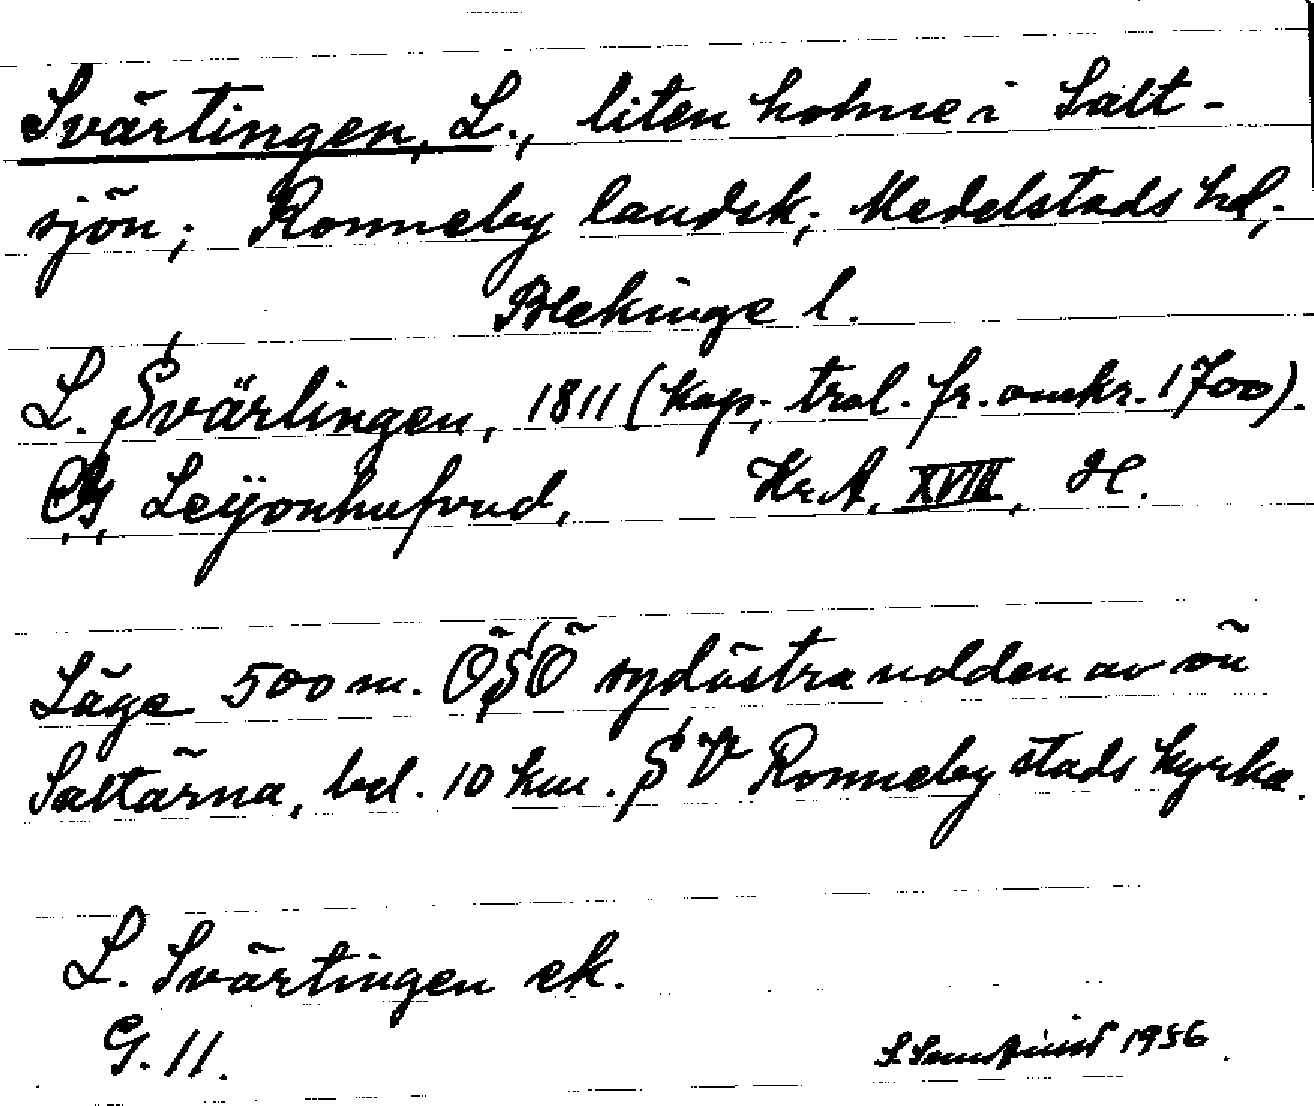 Svärtingen, L., liten holme i Salt-
sjön; Ronneby landsk; Medelstads hd;
Blekinge l.
L. Svärlingen, 1811 (kop. tral. fr. omkr. 1700).
Leijonhufvud, Kr.A. XVIII,
Läge 500 m. ÖSÖ sydöstra udden av ön
Saltärna, bel. 10 km. SV Ronneby stads kyrka.
L. Svärtingen ek.
G. 11. 1956.